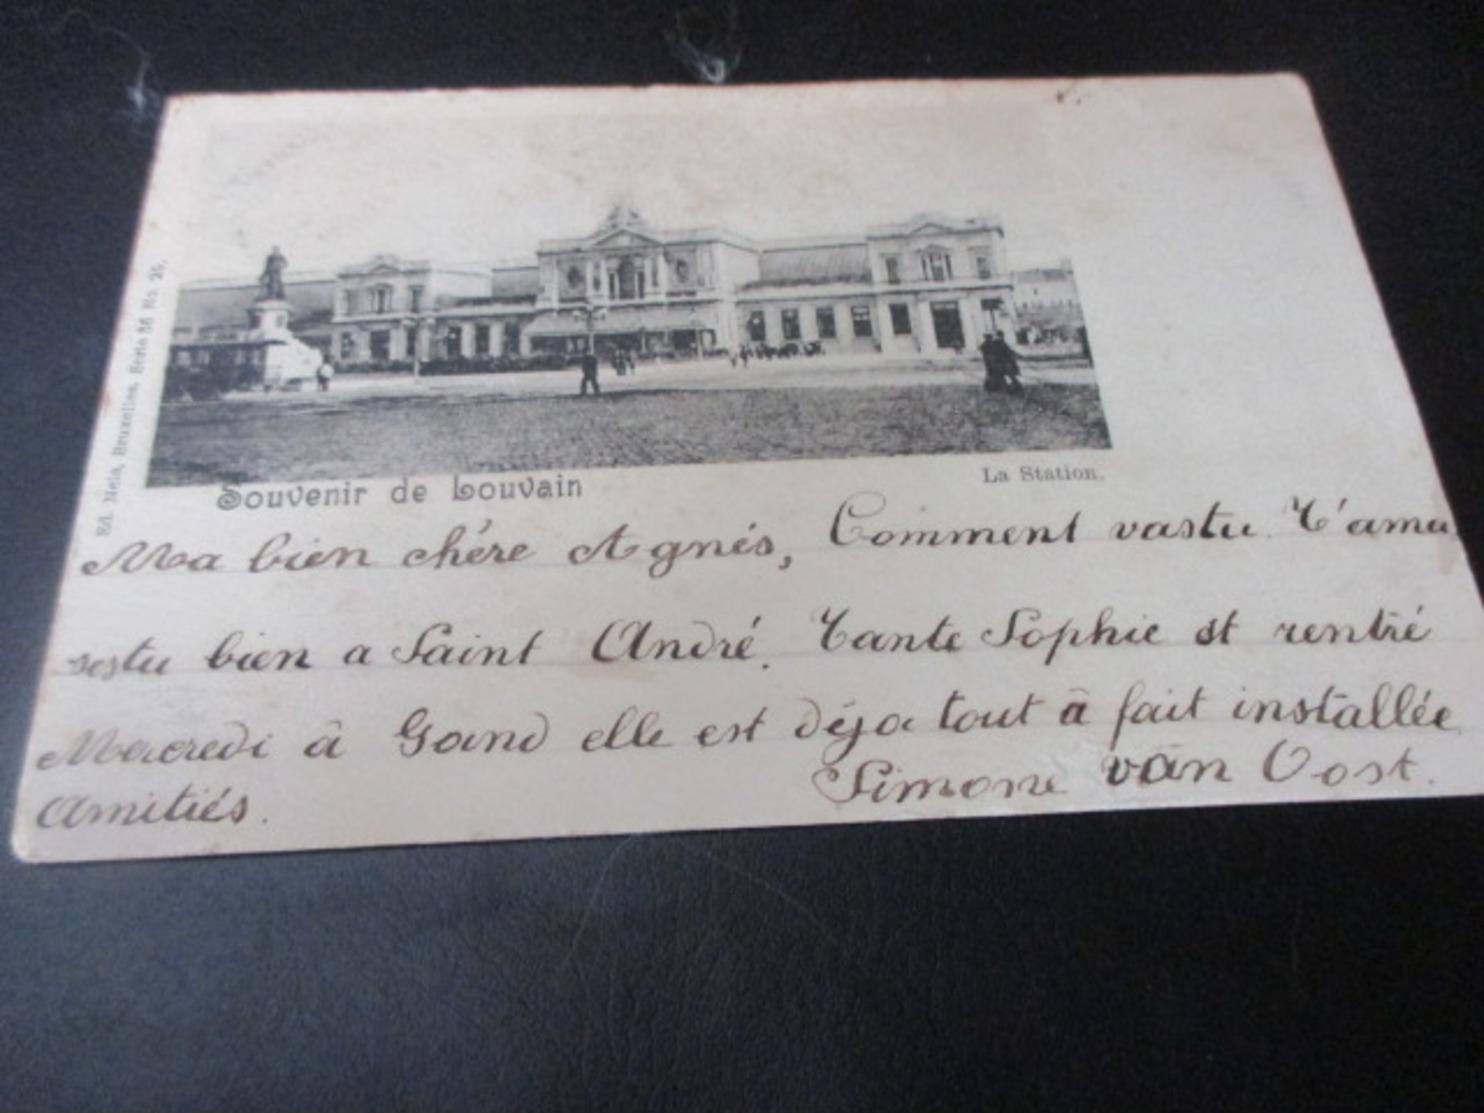 Ed. Nels, Bruxelles, Serie 36 No. 25.
Souvenir de Louvain
La Station.
Ma bien chére Agnés, Comment vastu. T'amu
sestu bien a Saint André. Tante Sophie est rentré
Mercredi à Gand elle est déja tout à fait installée
Amitiés. Simone van Oost.